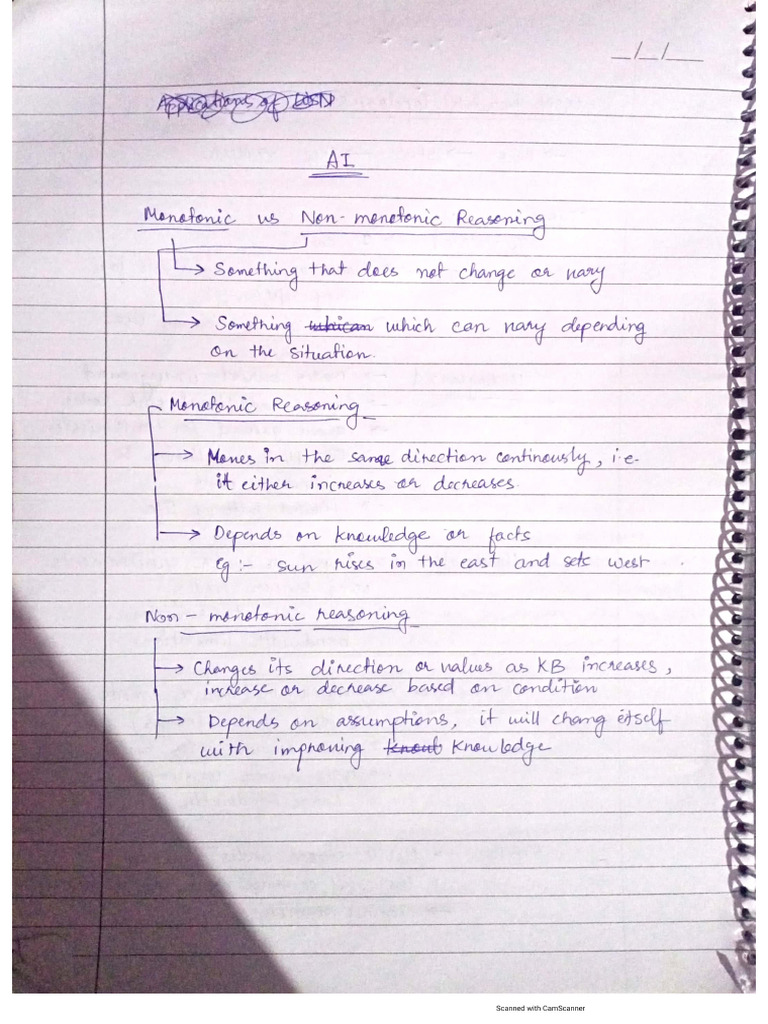 __/__/___
Applications of
AI
Monotonic vs Non-monotonic Reasoning
Something that does not change or vary
Something whican which can vary depending
on the situation.
Monotonic Reasoning
Moves in the same direction continously, i.e.
it either increases or decreases.
Depends on knowledge or facts
eg :- sun rises in the east and sets west .
Non-monotonic reasoning
Changes its direction or values as KB increases,
increase or decrease based on condition
Depends on assumptions, it will chang itself
with improving knowl knowledge
Scanned with CamScanner